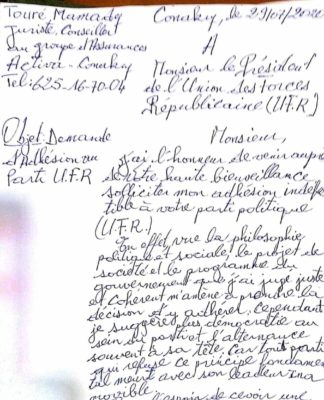 Touré, Mamady
Juriste, Conseiller
au groupe d'Assurances
Activa - Conakry
Tel: 625-16-70-04
Conakry, le 29/07/2022
A
Monsieur le Président
de l'Union des Forces
Républicaine (U.F.R)
Objet: Demande
d'Adhésion au
Parti U.F.R
Monsieur,
j'ai l'honneur de venir auprè
de votre haute bienveillance
solliciter mon adhésion indéfec
tible à votre parti politique
(U.F.R.)
En effet, vue la philosophie
politique et sociale, le projet de
société et le programme du
gouvernement que j'ai jugé juste
et cohérent m'amène à prendre la
décision d'y adhérer. Cependant
je suggère plus démocratie au
sein du parti et l'alternance
souvent à sa tête. Car tout parti
qui refuse ce principe fondamen
tal meurt avec son leader ina
movible